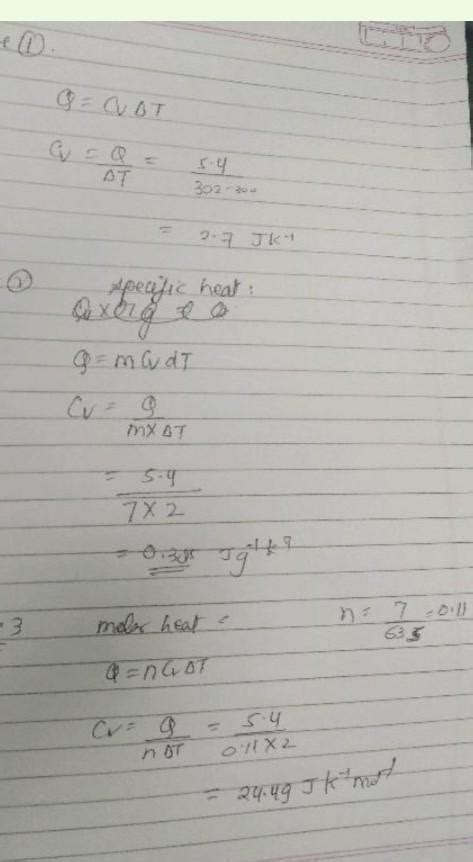 e (1).
Q = Cv ΔT
Cv = Q / ΔT = 5.4 / 302-300
= 2.7 JK⁻¹
(2) specific heat :
Q = m Cv dT
Cv = Q / m x ΔT
= 5.4 / 7 x 2
= 0.385 Jg⁻¹k⁻¹
3 molar heat = n = 7 / 63.5 = 0.11
Q = n Cv ΔT
Cv = Q / n ΔT = 5.4 / 0.11 x 2
= 24.49 J K⁻¹ mol⁻¹